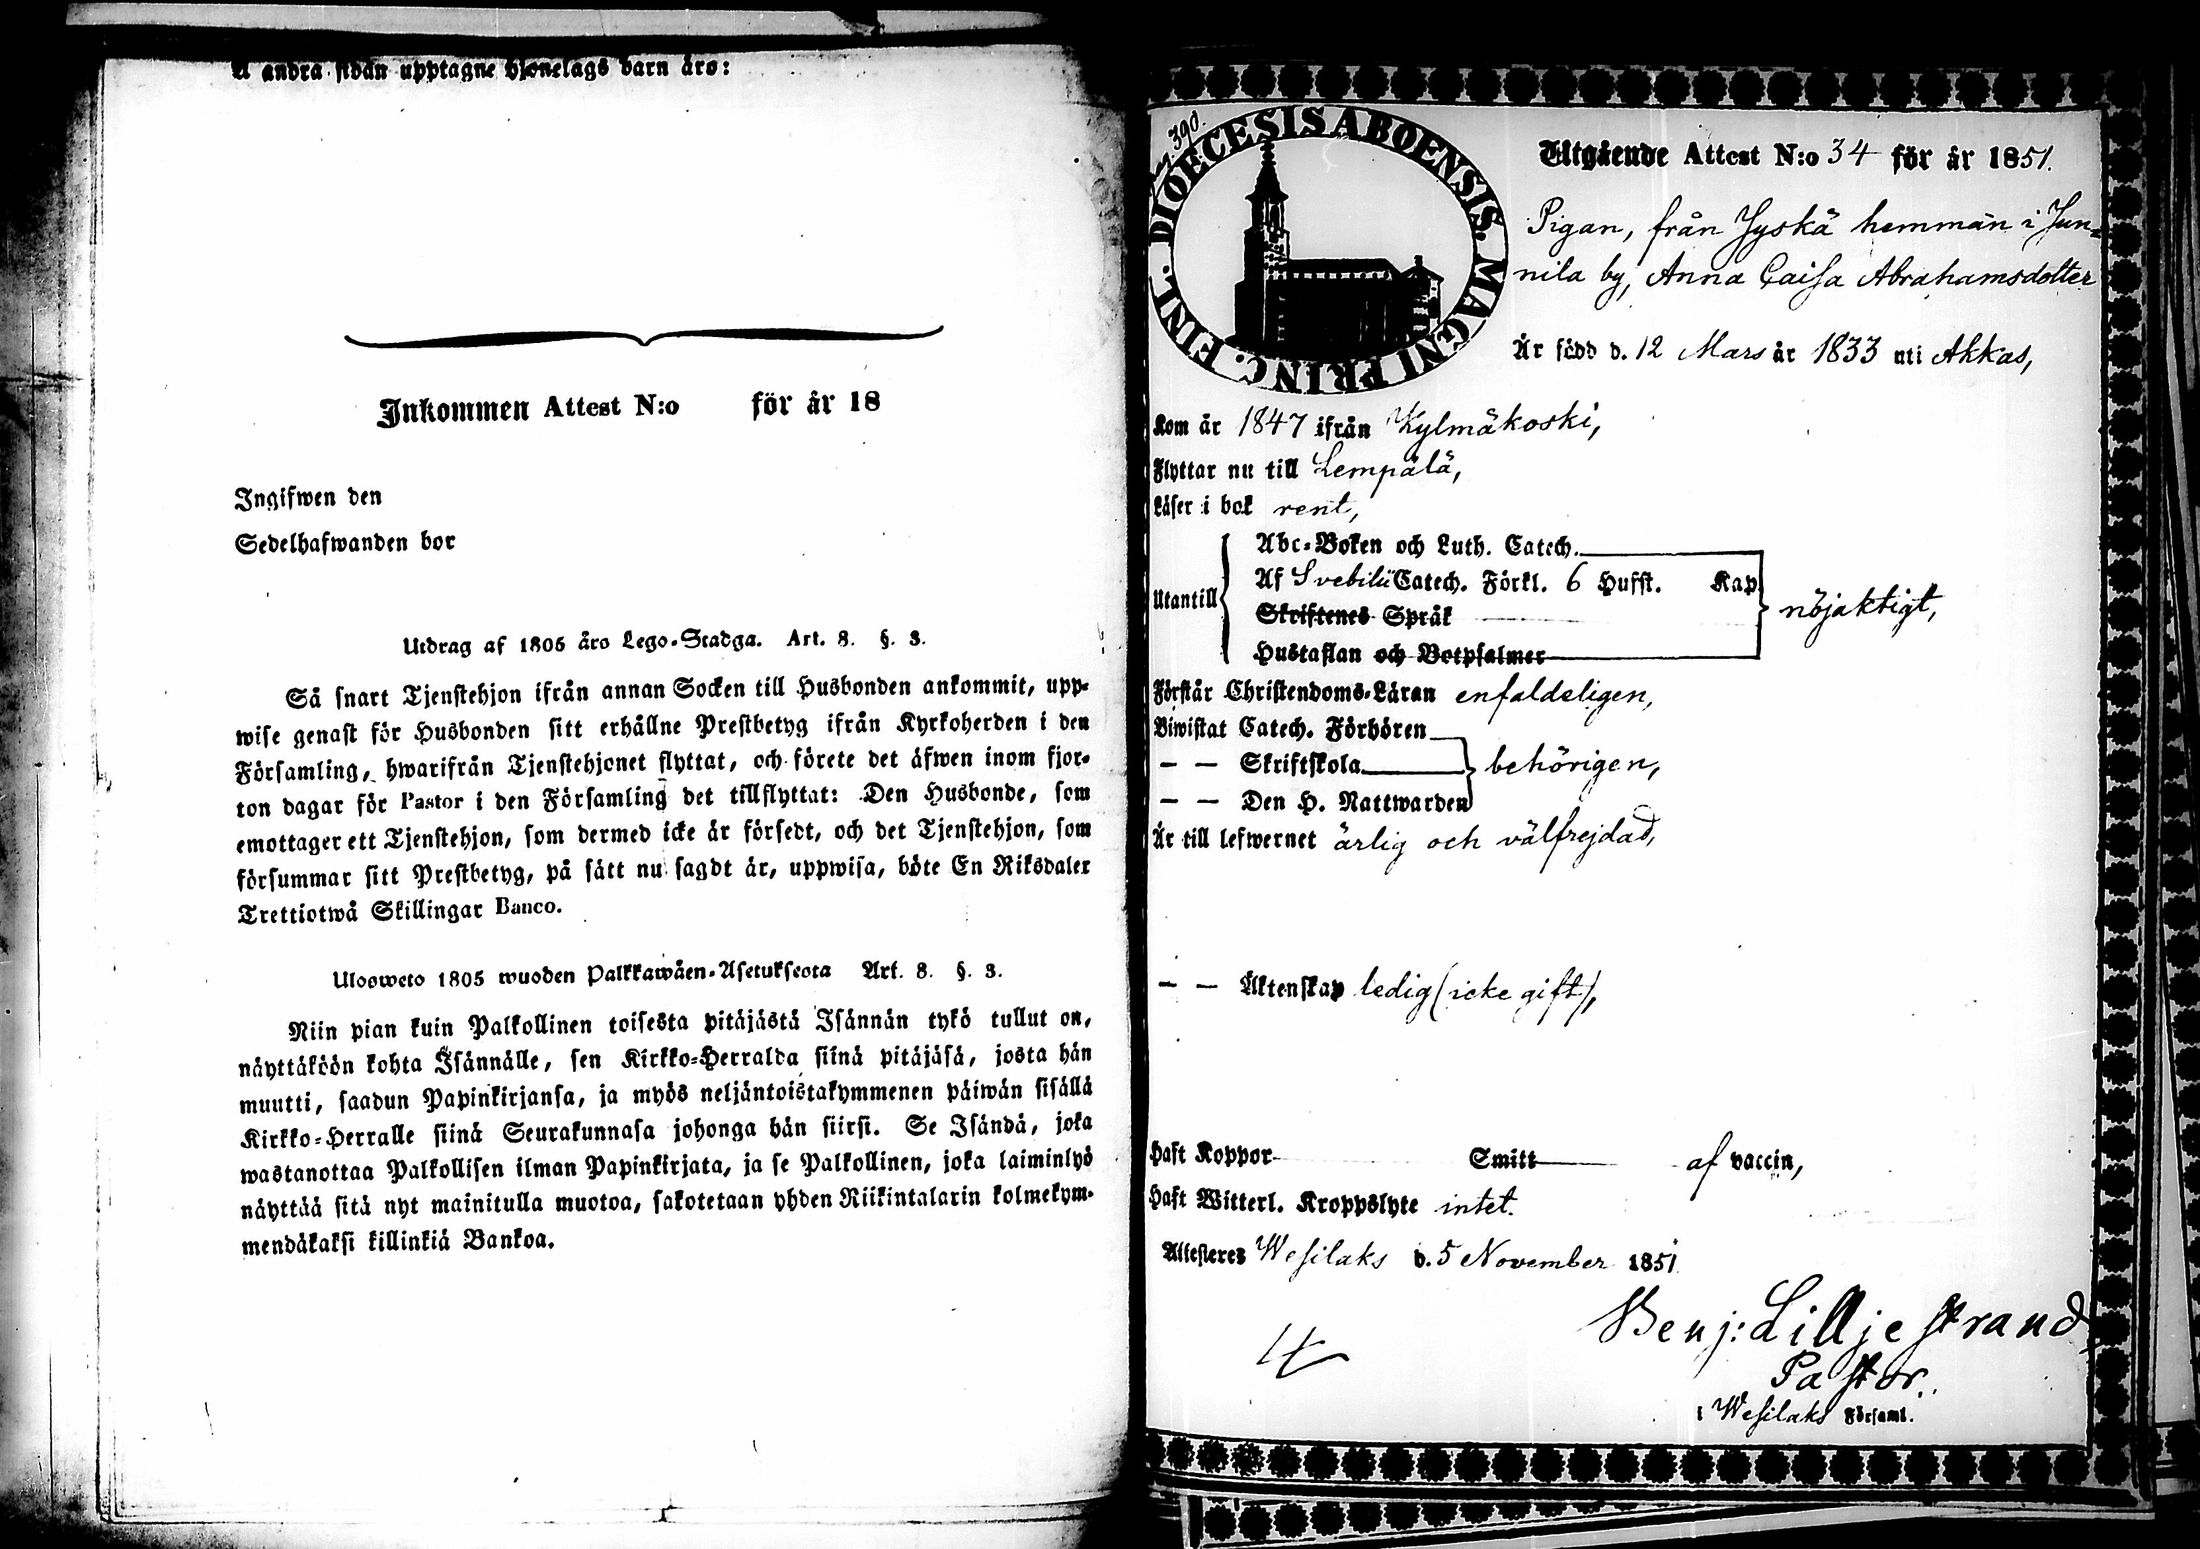 A andra sidan upptagne Hjonelags barn äro:
Inkommen Attest N:o för år 18
Ingifwen den
Sedelhafwanden bor
Utdrag af 1805 års Lego-Stadga. Art. 8. §. 3.
Så snart Tjenstehjon ifrån annan Socken till Husbonden ankommit, upp-
wise genast för Husbonden sitt erhållne Prestbetyg ifrån Kyrkoherden i den
Församling, hwarifrån Tjenstehjonet flyttat, och förete det äfwen inom fjor-
ton dagar för Pastor i den Församling det tillflyttat: Den Husbonde, som
emottager ett Tjenstehjon, som dermed icke är försedt, och det Tjenstehjon, som
försummar sitt Prestbetyg, på sätt nu sagdt är, uppwisa, böte En Riksdaler
Trettiotwå Skillingar Banco.
Ulosweto 1805 wuoden Palkkawäen-Asetuksesta Art. 8. §. 3.
Niin pian kuin Palkollinen toisesta pitäjästä Isännän tykö tullut on,
näyttäköön kohta Isännälle, sen Kirkko-Herralda siinä pitäjäsä, josta hän
muutti, saadun Papinkirjansa, ja myös neljäntoistakymmenen päiwän sisällä
Kirkko-Herralle siinä Seurakunnasa johonga hän siirsi. Se Isändä, joka
wastanottaa Palkollisen ilman Papinkirjata, ja se Palkollinen, joka laiminlyö
näyttää sitä nyt mainitulla muotoa, sakotetaan yhden Riikintalarin kolmekym-
mendäkaksi killinkiä Bankoa.
390.
DIOECESIS ABOENSIS. MAGNI PRINC. FINL.
Utgående Attest N:o 34 för år 1851.
Pigan, från Jyskä hemman i Jun-
nila by, Anna Caisa Abrahamsdotter
Är född d. 12 Mars år 1833 uti Akkas,
Kom år 1847 ifrån Kylmäkoski,
Flyttar nu till Lempälä,
Läser i bok rent,
Utantill
Abc-Boken och Luth. Catech.
Af Svebilii Catech. Förkl. 6 Hufst. Kap.
Skriftenes Språk
Hustaflan och Botpsalmer
nöjaktigt,
Förstår Christendoms-Läran enfaldeligen,
Biwistat Catech. Förhören
— — Skriftskola
behörigen,
— — Den H. Nattwarden
Är till lefwernet ärlig och välfrejdad,
— — Äktenskap ledig (icke gift),
Haft Koppor Smitt af vaccin,
Haft Witterl. Kroppslyte intet.
Attesteres Wesilaks d. 5 November 1851
Benj: Lilljestrand,
Pastor.
i Wesilaks Församl.